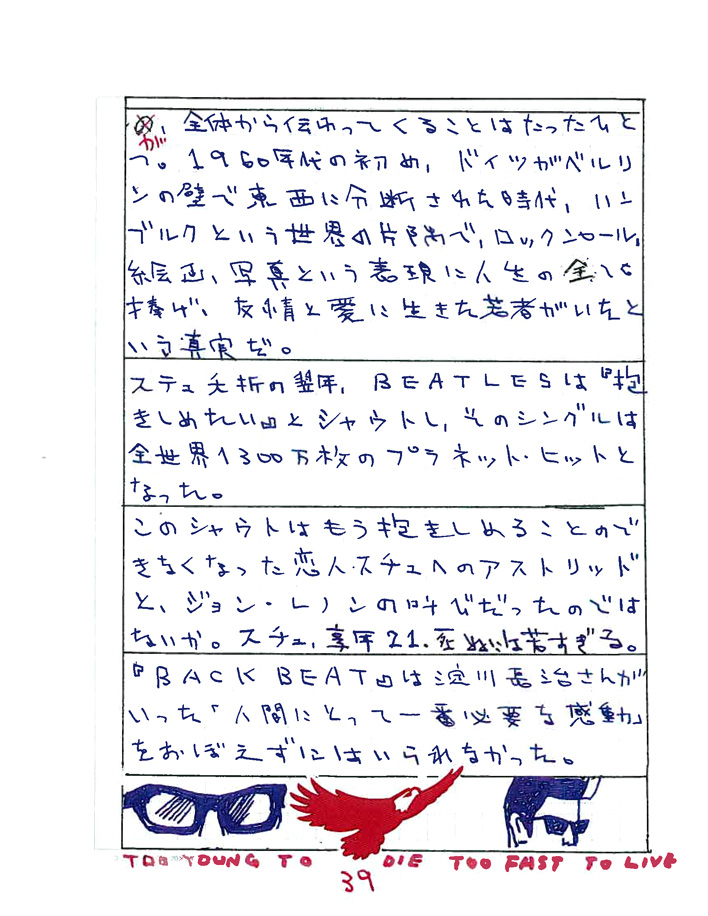 が、全体から伝わってくることはたったひと
つ。1960年代の初め，ドイツがベルリ
ンの壁で東西に分断された時代，ハン
ブルクという世界の片隅で，ロックンロール，
絵画，写真という表現に人生の全てを
捧げ、友情と愛に生きた若者がいたと
いう真実だ。
スチュ夭折の翌年，BEATLESは『抱
きしめたい』とシャウトし，そのシングルは
全世界1300万枚のプラネット・ヒットと
なった。
このシャウトはもう抱きしめることので
きなくなった恋人スチュへのアストリッド
と、ジョン・レノンの叫びだったのでは
ないか。スチュ，享年21.死ぬには若すぎる。
『BACK BEAT』は淀川長治さんが
いった「人間にとって一番必要な感動」
をおぼえずにはいられなかった。
TOO YOUNG TO DIE TOO FAST TO LIVE
39